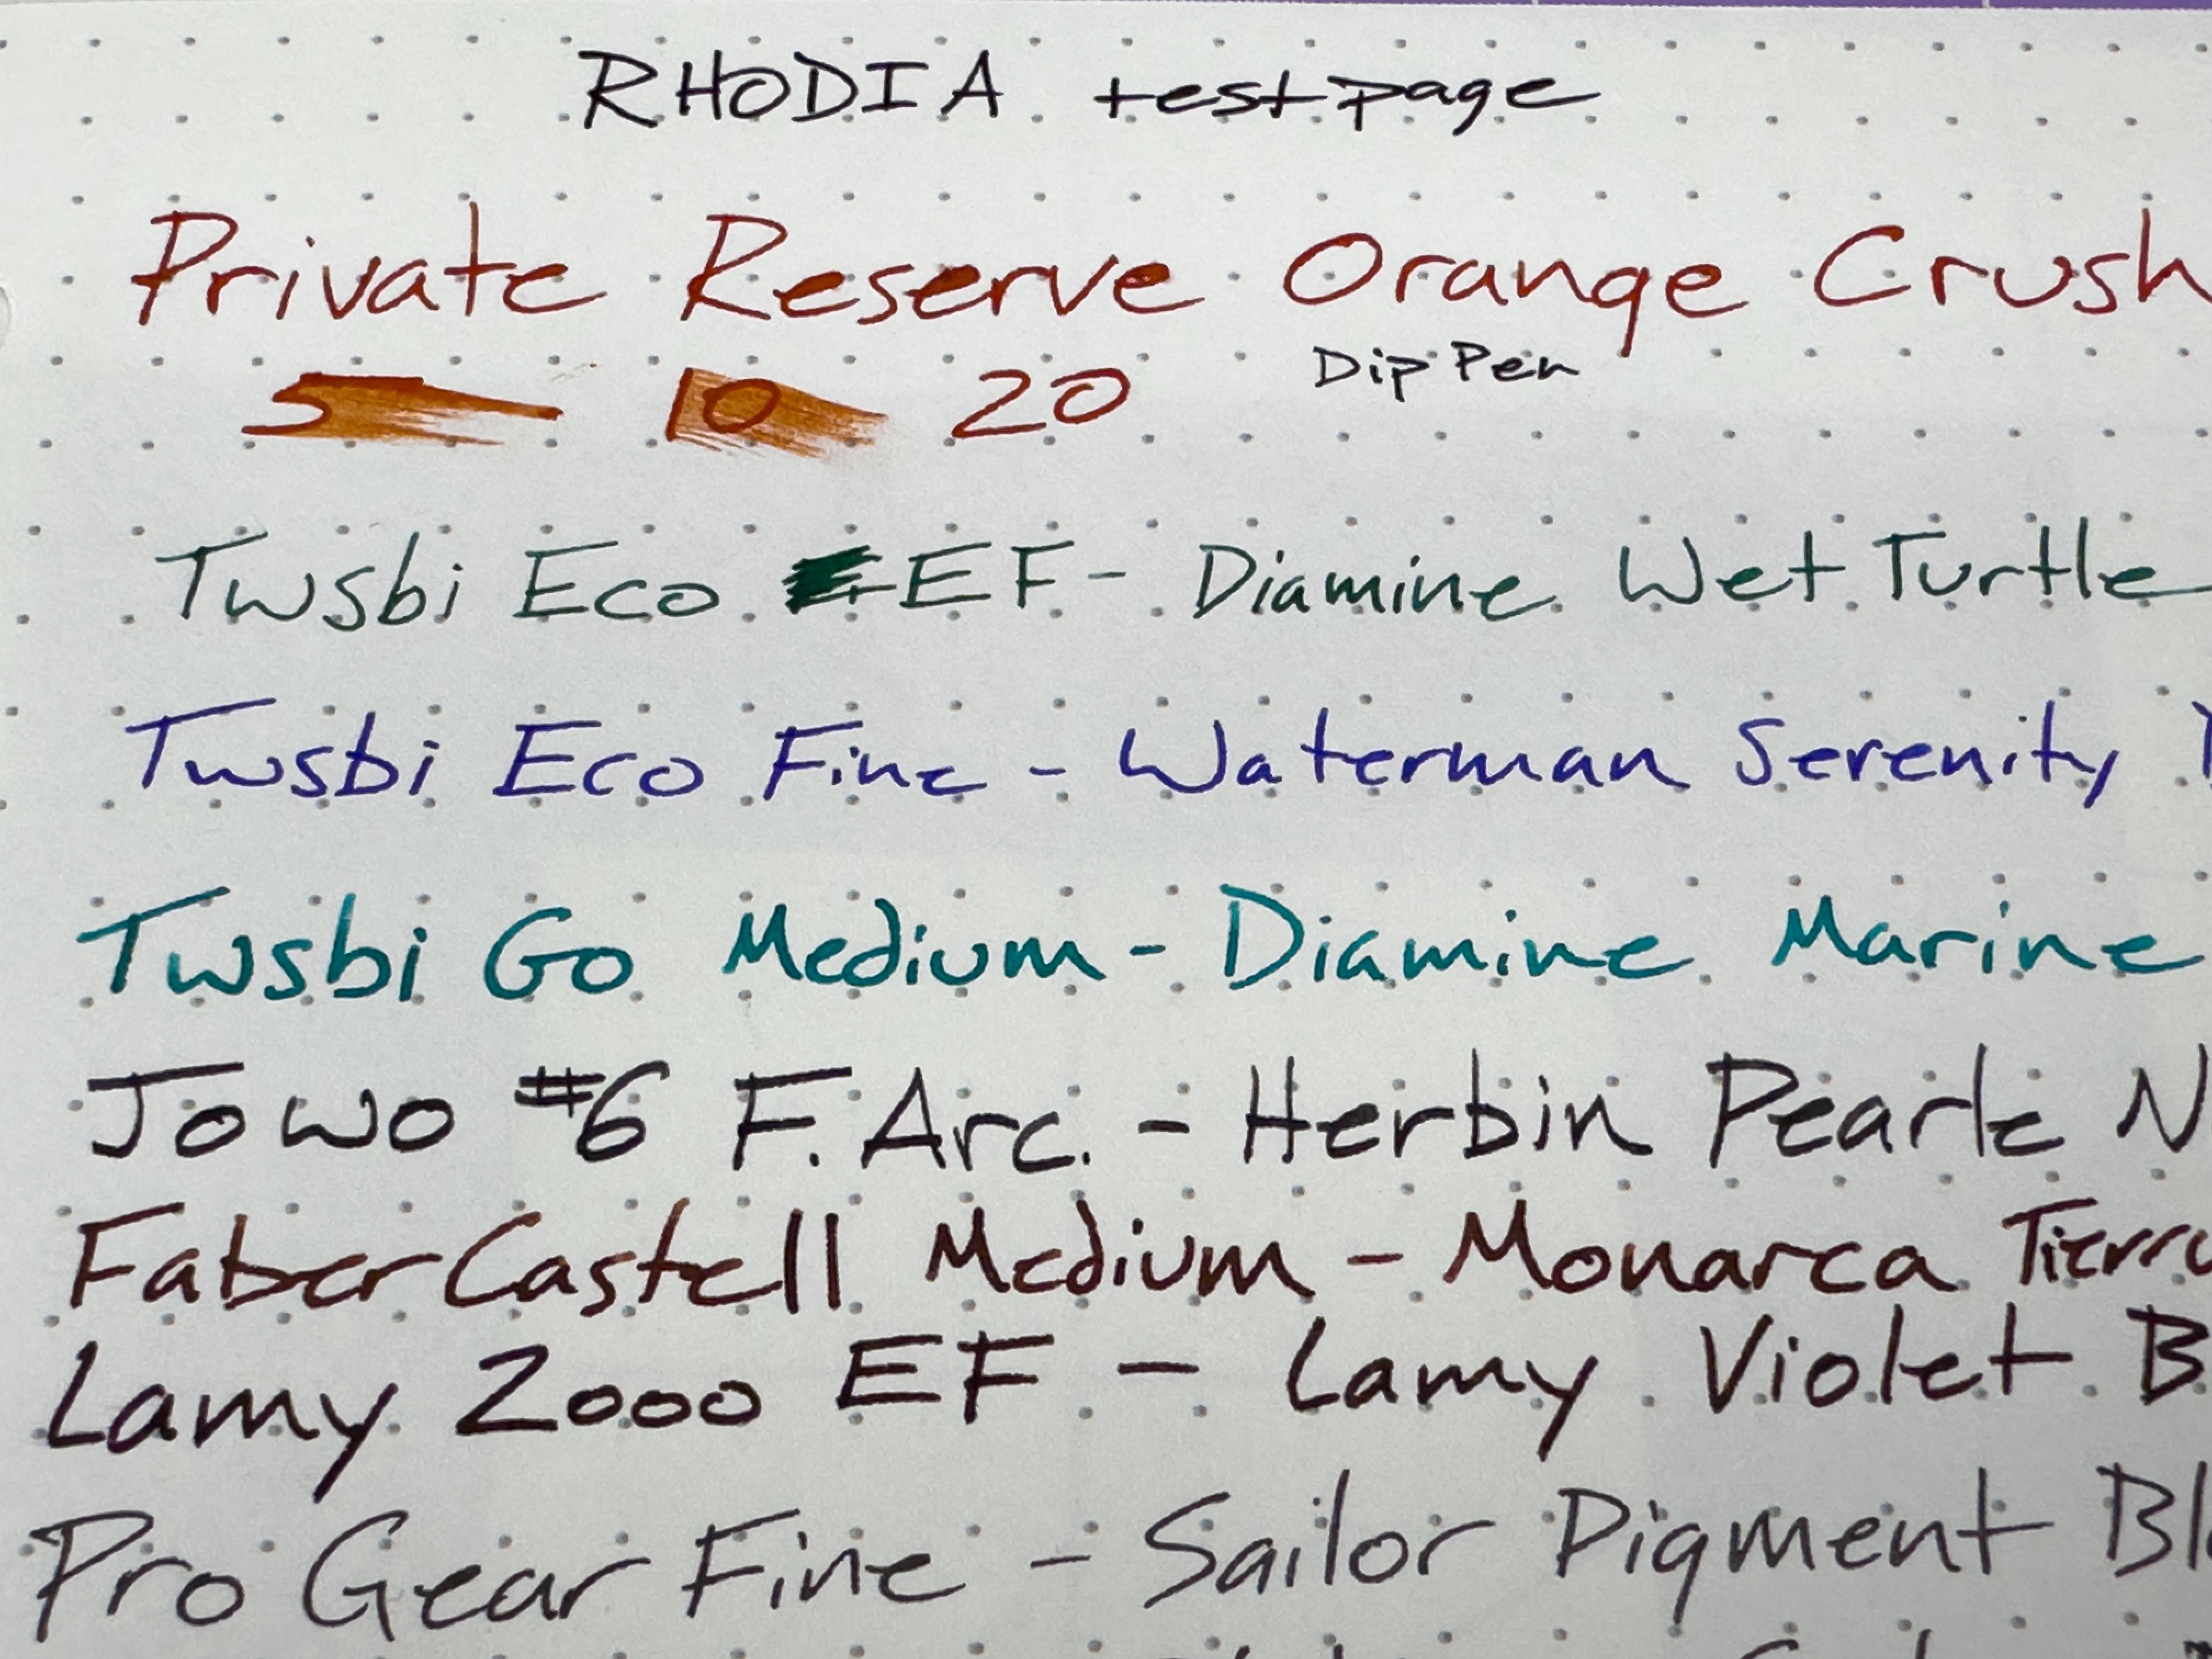 RHODIA test page
Private Reserve Orange Crush
5 10 20 Dip Pen
Twsbi Eco EF - Diamine Wet Turtle
Twsbi Eco Fine - Waterman Serenity
Twsbi Go Medium - Diamine Marine
Jowo #6 F. Arc. - Herbin Pearle N
Faber Castell Medium - Monarca Tierra
Lamy 2000 EF - Lamy Violet B
Pro Gear Fine - Sailor Pigment Bl